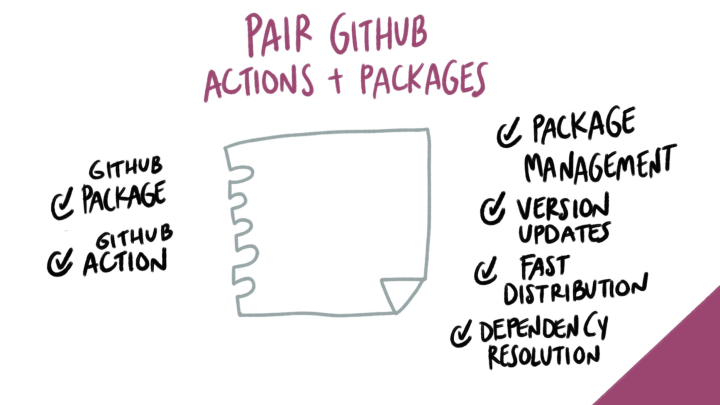 PAIR GITHUB
ACTIONS + PACKAGES
GITHUB
PACKAGE
GITHUB
ACTION
PACKAGE
MANAGEMENT
VERSION
UPDATES
FAST
DISTRIBUTION
DEPENDENCY
RESOLUTION